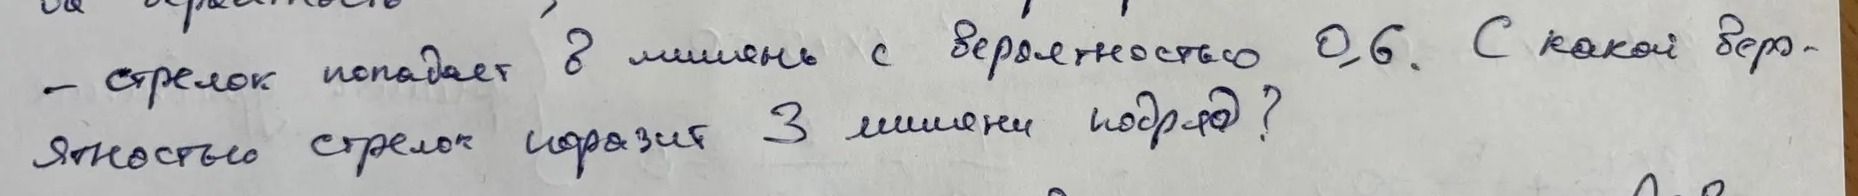 - стрелок попадает в мишень с вероятностью 0,6. С какой веро-
ятностью стрелок поразит 3 мишени подряд?